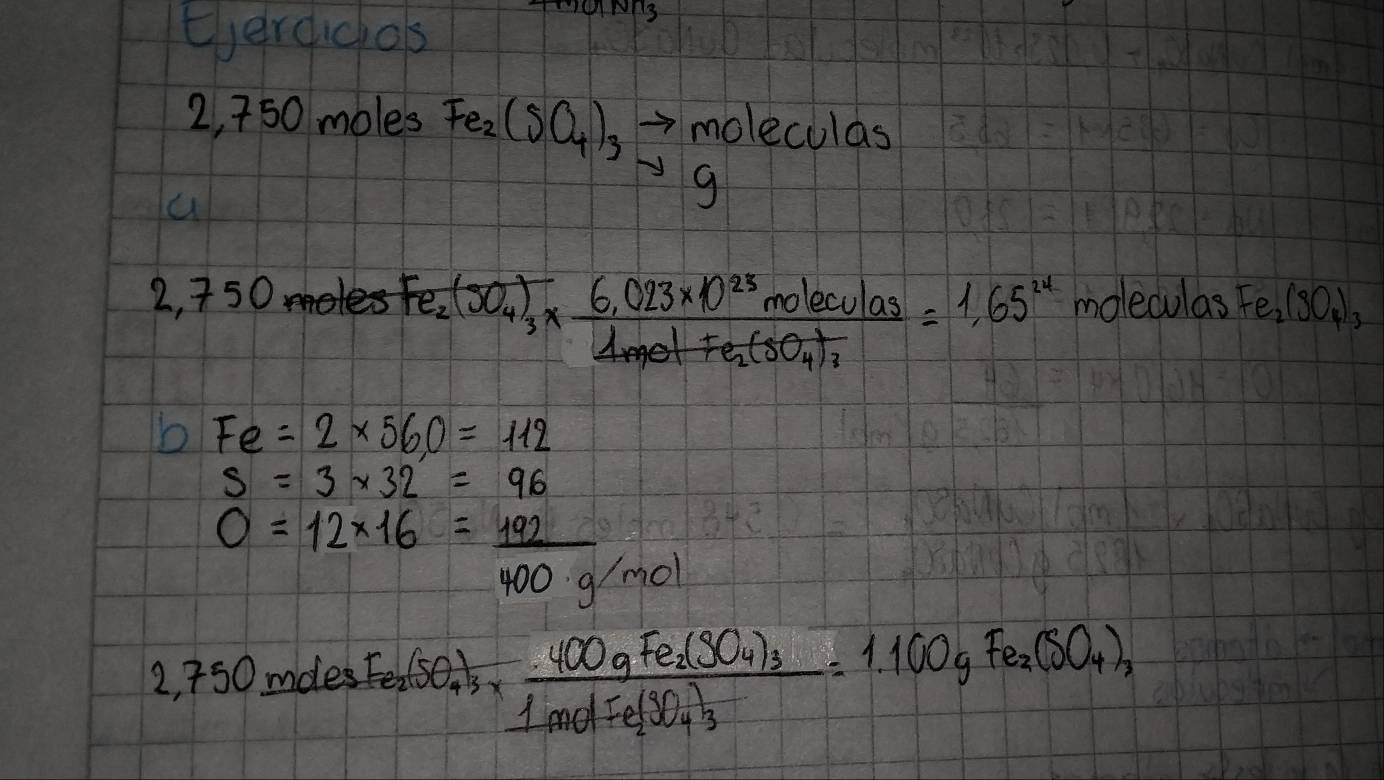 4molNH₃
Ejercicios
2,750 moles Fe₂(SO₄)₃ → moleculas
→ g
a
2,750 moles Fe₂(SO₄)₃ × 6,023×10²³ moleculas / 1mol Fe₂(SO₄)₃ = 1,65²⁴ moleculas Fe₂(SO₄)₃
b Fe = 2 × 56,0 = 112
S = 3 × 32 = 96
O = 12 × 16 = 192
400 g/mol
2,750 moles Fe₂(SO₄)₃ × 400g Fe₂(SO₄)₃ / 1mol Fe₂(SO₄)₃ = 1.100g Fe₂(SO₄)₃